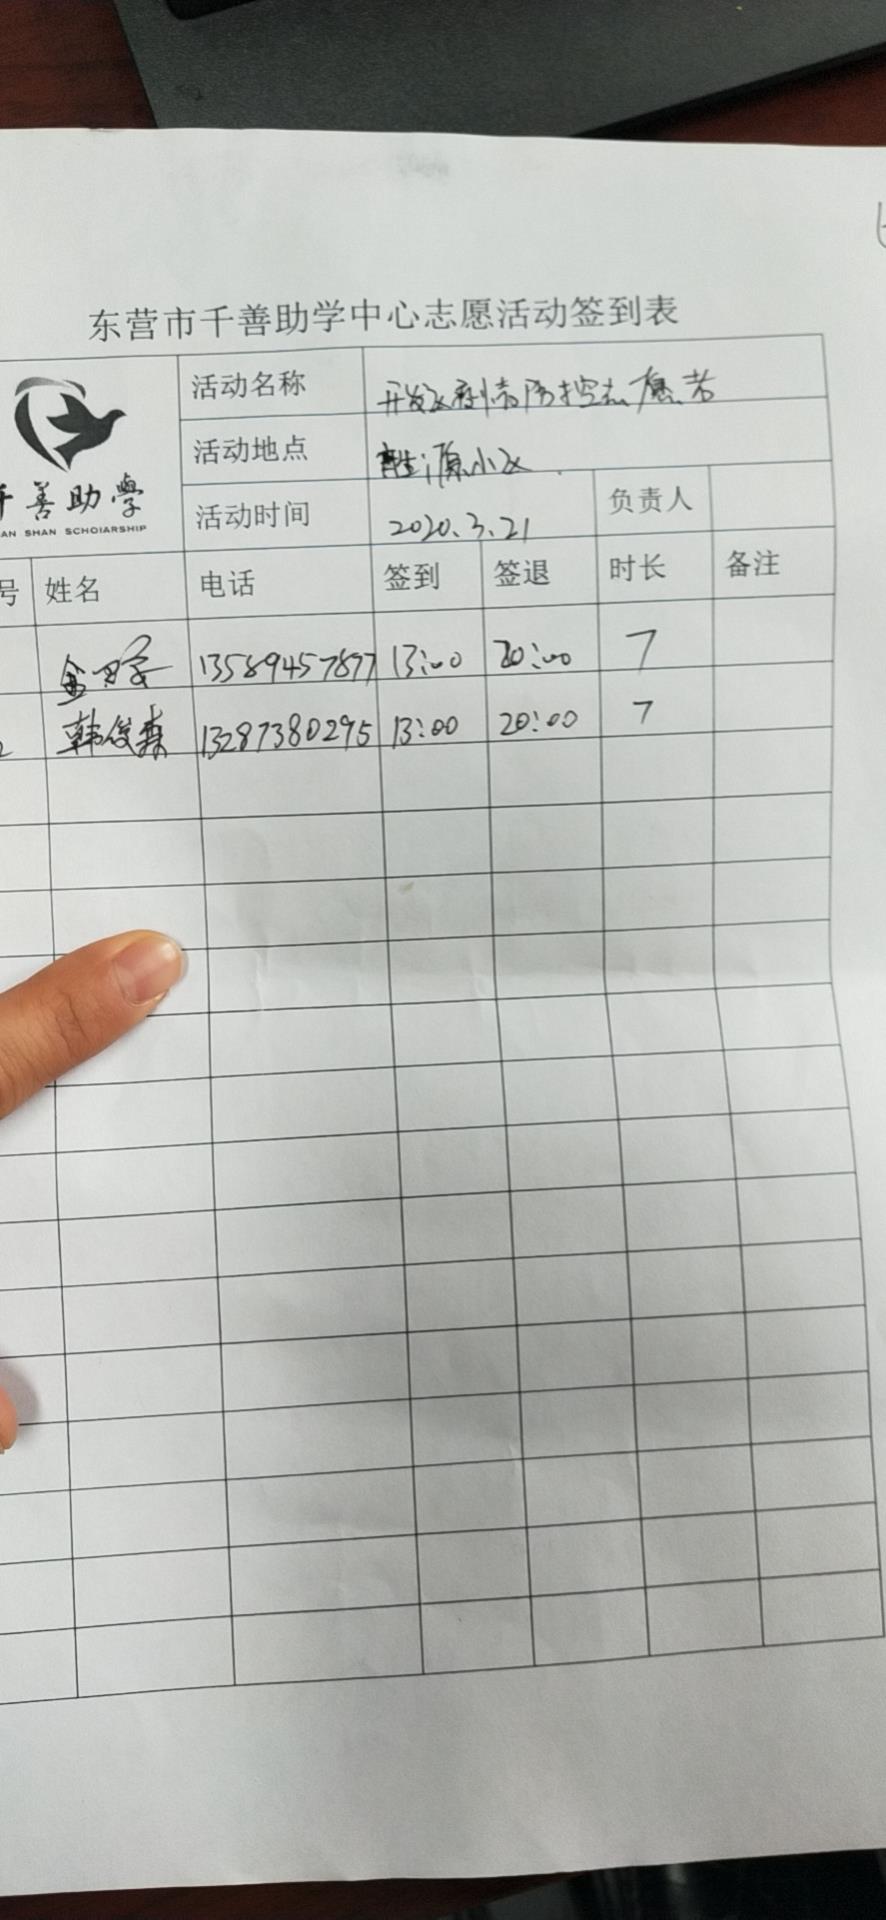 东营市千善助学中心志愿活动签到表
千善助學
AN SHAN SCHOIARSHIP
活动名称 开发区疫情防控志愿者
活动地点 源小区
活动时间 2020.3.21 负责人
号 姓名 电话 签到 签退 时长 备注
13589457877 13:00 20:00 7
2 韩俊森 13287380295 13:00 20:00 7